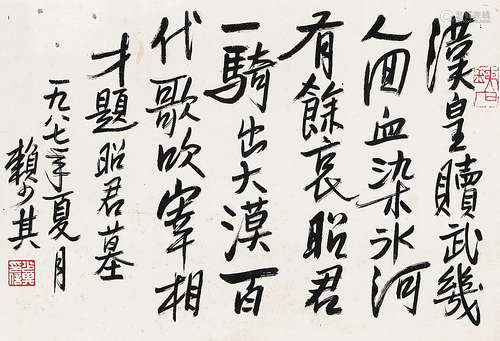 漢皇贖武幾
人回血染冰河
有餘哀昭君
一騎出大漠百
代歌吹宰相
才題昭君墓
一九八七年夏月
賴少其